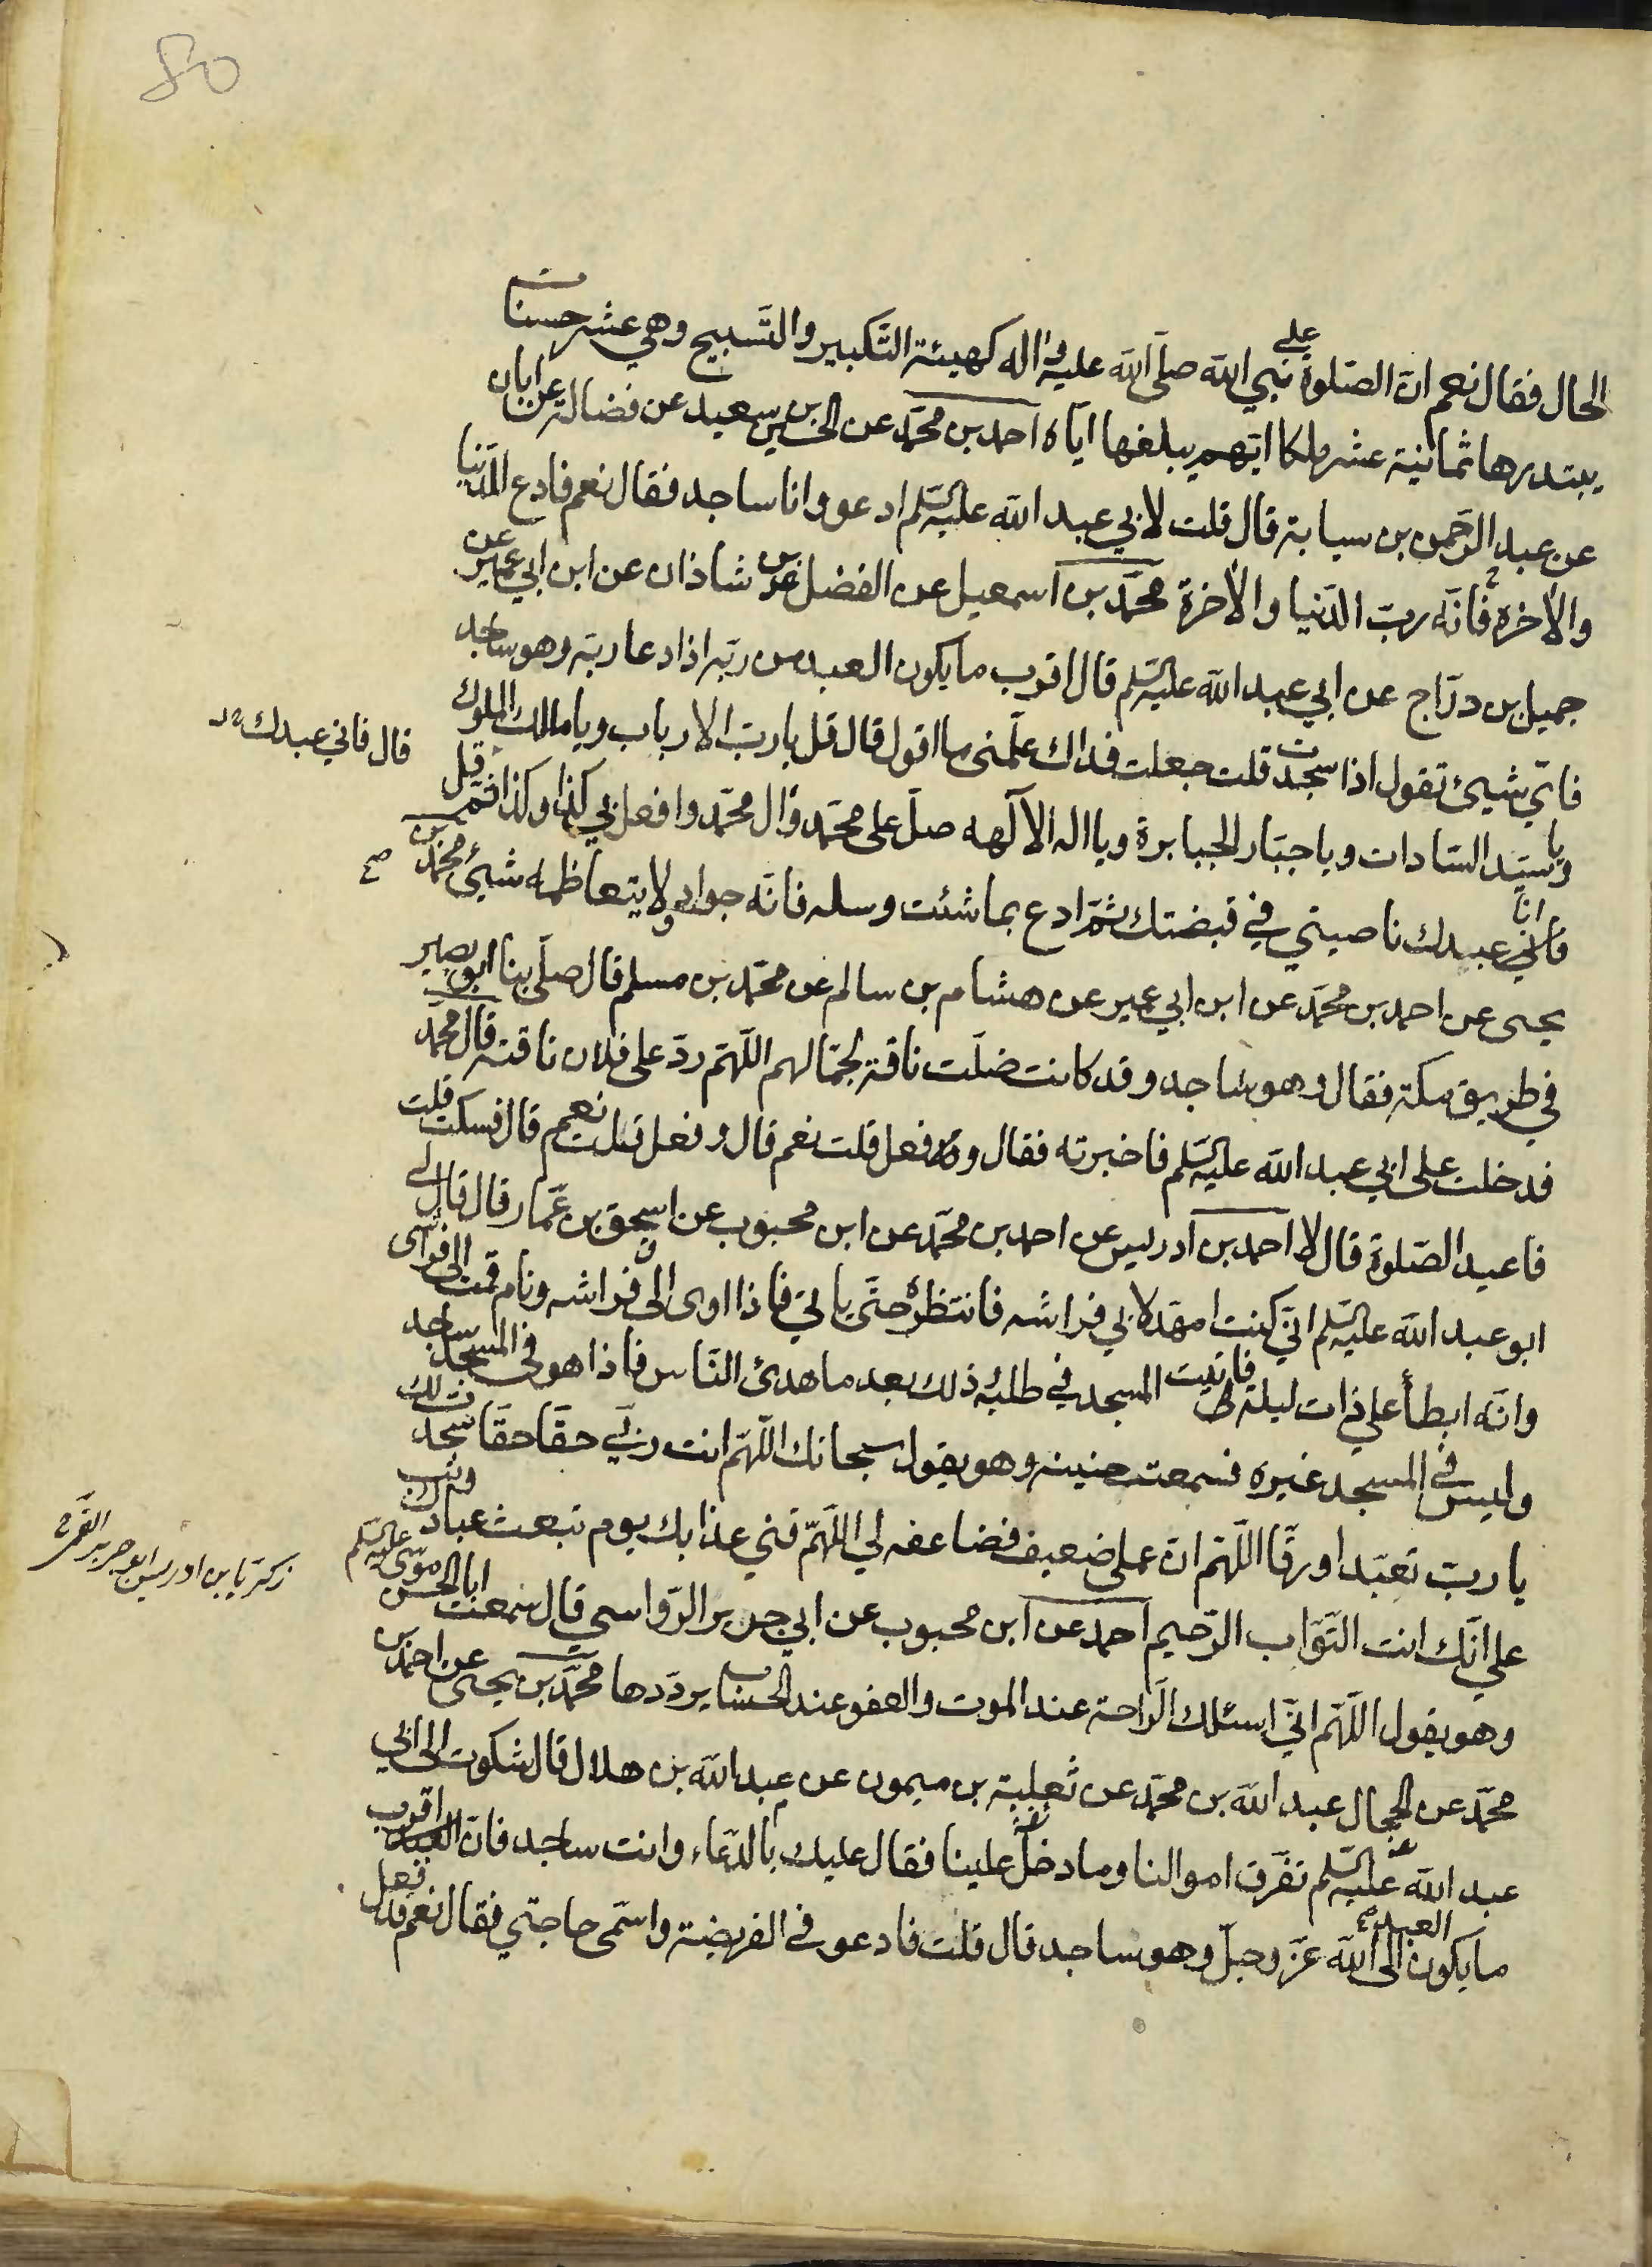 الحال فقال نعم ان الصلوة على نبي الله صلى الله عليه واله كهيئة التكبير والتسبيح وهي عشر حسنات
يبتدرها ثمانية عشر ملكا ايهم يبلغها اياه احمد بن محمد عن الحسين بن سعيد عن فضالة عن ابان
عن عبد الرحمن بن سيابة قال قلت لابي عبد الله عليه السلم ادعو وانا ساجد فقال نعم فادع للدنيا
والاخرة فانه رب الدنيا والاخرة محمد بن اسمعيل عن الفضل بن شاذان عن ابن ابي عمير عن
جميل بن دراج عن ابي عبد الله عليه السلم قال اقرب ما يكون العبد من ربه اذا دعا ربه وهو ساجد
فاي شيئ تقول اذا سجدت قلت جعلت فداك علمني ما اقول قال قل يا رب الارباب ويا مالك الملوك
ويا سيد السادات ويا جبار الجبابرة ويا اله الالهه صل على محمد وال محمد وافعل بي كذا وكذا ثم قل
قال فاني عبدك
فانا عبدك ناصيتي في قبضتك ثم ادع بما شئت وسله فانه جواد ولا يتعاظمه شيئ محمد بن
يحيى عن احمد بن محمد عن ابن ابي عمير عن هشام بن سالم عن محمد بن مسلم قال صلى بنا ابو بصير
في طريق مكة فقال وهو ساجد وقد كانت ضلت ناقة لجمالهم اللهم رد على فلان ناقته قال محمد
فدخلت على ابي عبد الله عليه السلم فاخبرته فقال وفعل قلت نعم قال وفعل قلت نعم قال فسكت قلت
فاعيد الصلوة قال لا احمد بن ادريس عن احمد بن محمد عن ابن محبوب عن اسحق بن عمار قال قال لي
ابو عبد الله عليه السلم اني كنت امهد لابي فراشه فانتظره حتى ياتي فاذا اوى الى فراشه ونام قمت الى فراشي
وانه ابطأ علي ذات ليلة فاتيت المسجد في طلبه ذلك بعد ما هدئ الناس فاذا هو في المسجد ساجد
وليس في المسجد غيره فسمعت حنينه وهو يقول سبحانك اللهم انت ربي حقا حقا سجدت لك
يا رب تعبدا ورقا اللهم ان عملي ضعيف فضاعفه لي اللهم قني عذابك يوم تبعث عبادك وتب
علي انك انت التواب الرحيم احمد عن ابن محبوب عن ابي جرير الرواسي قال سمعت ابا الحسن موسى عليه السلم
زكريا بن ادريس ابو جرير القمي
وهو يقول اللهم اني اسئلك الراحة عند الموت والعفو عند الحساب يرددها محمد بن يحيى عن احمد بن
محمد عن الحجال عبد الله بن محمد عن ثعلبة بن ميمون عن عبد الله بن هلال قال شكوت الى ابي
عبد الله عليه السلم تفرق اموالنا وما دخل علينا فقال عليك بالدعاء وانت ساجد فان اقرب
ما يكون العبد الى الله عز وجل وهو ساجد قال قلت فادعو في الفريضة واسمي حاجتي فقال نعم قد فعل